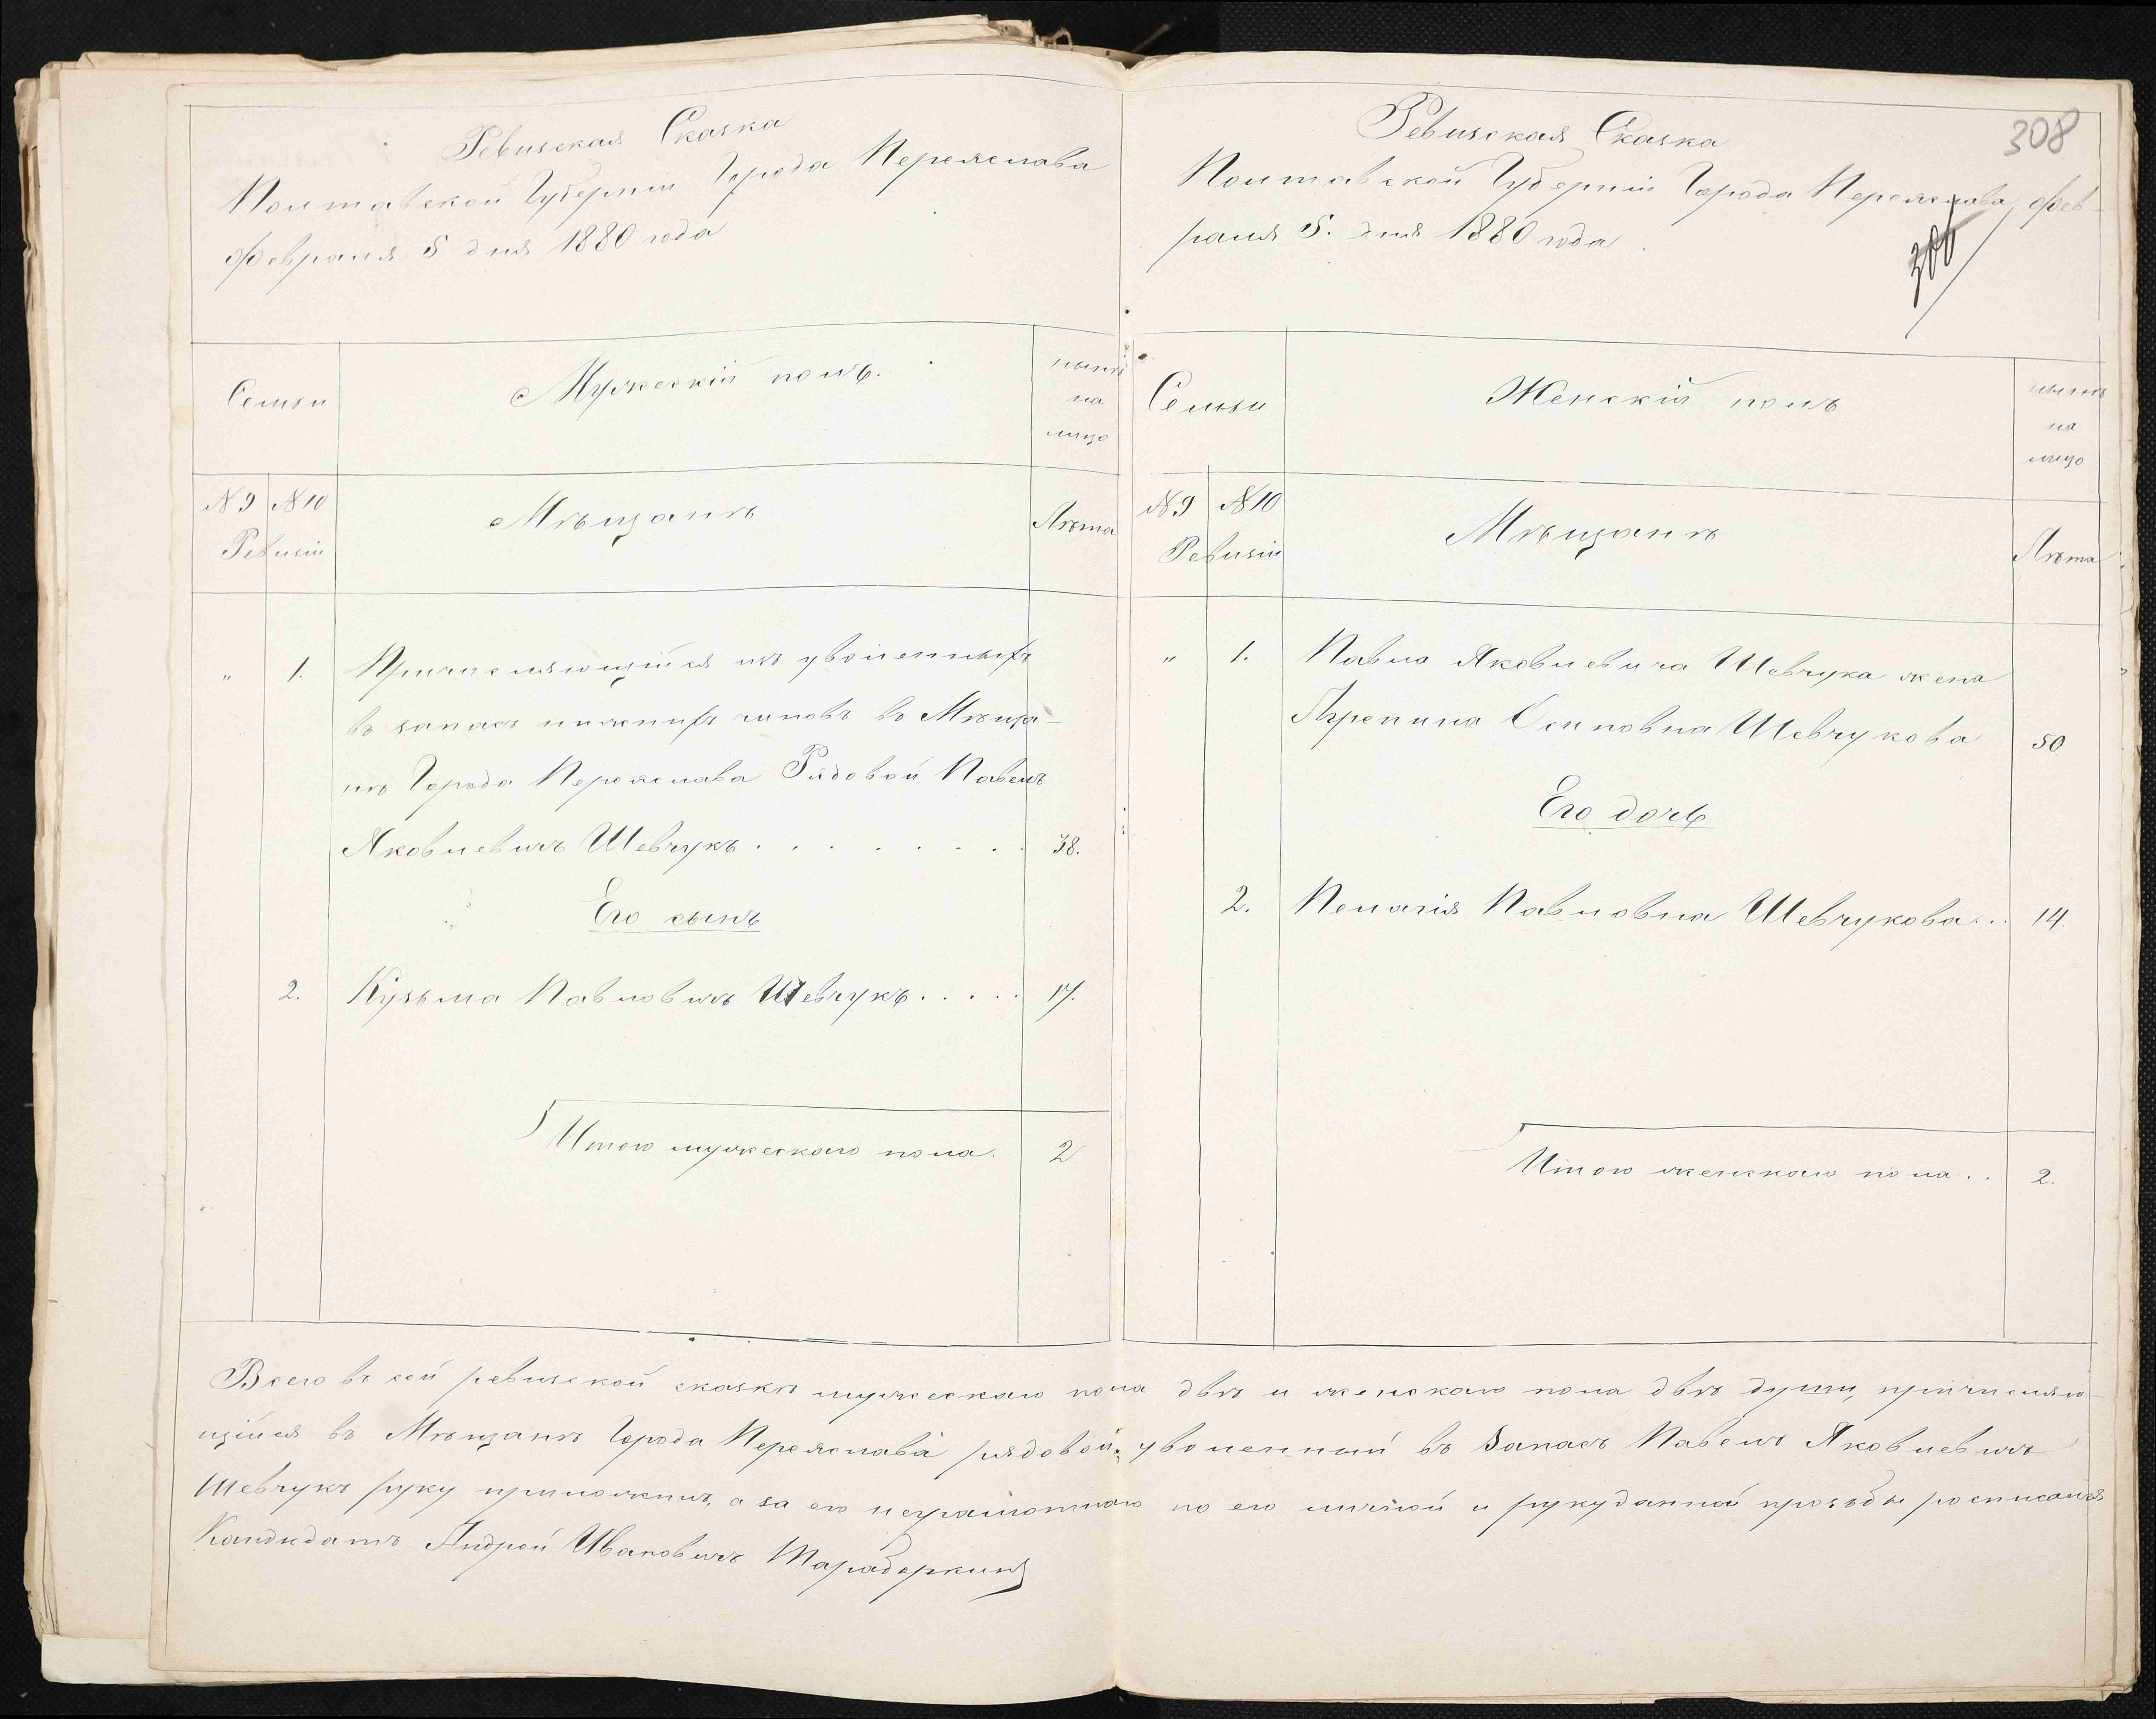 Ревизская Сказка
Полтавской Губерніи Города Переяслава
февраля 5 дня 1880 года
Семьи
Мужескій полъ.
нынѣ
на
лицо
№ 9 № 10
Ревизіи
Мѣщанъ
Лѣта
" 1. Причисляющійся изъ уволенныхъ
въ запасъ нижнихъ чиновъ въ Мѣща-
не Города Переяслава Рядовой Павелъ
Яковлевичъ Шевчукъ . . . . . . . . 38.
Его сынъ
2. Кузьма Павловичъ Шевчукъ . . . . . 17.
Итого мужескаго пола. 2
308
Ревизская Сказка
Полтавской Губерніи Города Переяслава, фев-
раля 5. дня 1880 года.
Семьи
Женскій полъ
нынѣ
на
лицо
№ 9 № 10
Ревизіи
Мѣщанъ
Лѣта
" 1. Павла Яковлевича Шевчука жена
Осиповна Шевчукова 50
Его дочь
2. Пелагія Павловна Шевчукова . . 14
Итого женскаго пола . . 2.
Всего въ сей ревизской сказкѣ мужескаго пола двѣ и женскаго пола двѣ души, причисляю-
щійся въ Мѣщане Города Переяслава рядовой уволенный въ Запасъ Павелъ Яковлевичъ
Шевчукъ руку приложилъ, а за его неграмотнаго по его личной и рукуданной прозьбы росписался
Кандидатъ Андрей Ивановичъ